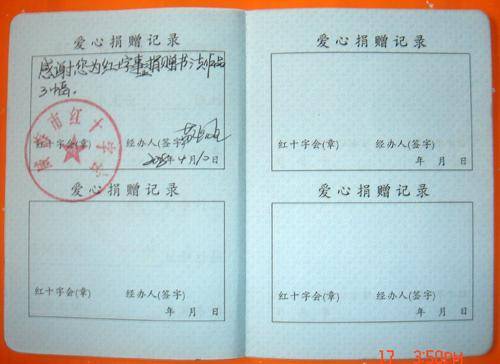 爱心捐赠记录
感谢您为红十字事业捐赠书法作品
3幅。
市红十字会
红十字会(章) 经办人(签字)
年4月10日
爱心捐赠记录
红十字会(章) 经办人(签字)
年 月 日
爱心捐赠记录
红十字会(章) 经办人(签字)
年 月 日
爱心捐赠记录
红十字会(章) 经办人(签字)
年 月 日
17 3:50PM